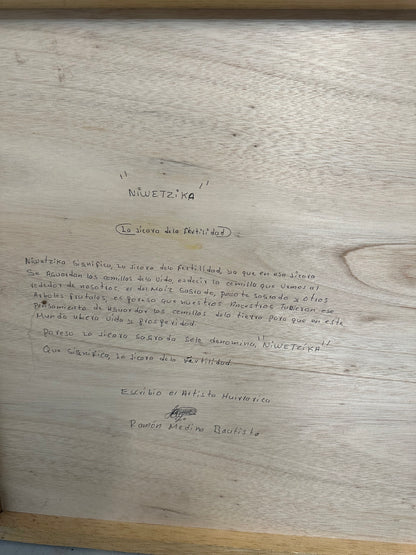 "NIWETZIKA"
La Jicara dela fertilidad
Niwetzika significa, La Jicara dela fertilidad, ya que en esa Jicara
Se Aguardan las cemillas dela vida, es decir la cemilla que vemos al
rededor de nosotros. el del Maiz Sagrado, peyote sagrado y otros
Arboles frutales, es por eso que nuestros Ancestros Tubieron ese
pensamiento de aguardar las cemillas dela tierra para que en este
Mundo ubiera vida y prosperidad.
por eso La Jicara sagrada sele denomina, "NIWETZIKA"
Que significa, La Jicara dela fertilidad.
Escribio el Artista Huixarica
Ramón Medina Bautista